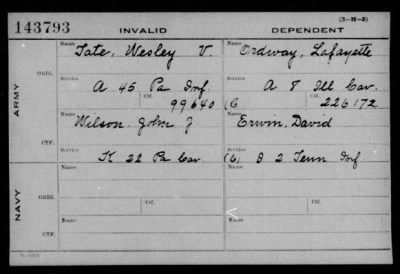 143793 INVALID DEPENDENT (3-H-5)
Name Name
Tate, Wesley V. Ordway, Lafayette
ARMY ORIG. Service Service
A 45 Pa Inf. A 8 Ill Cav.
Ctf. Ctf.
99640 (C 226172
Name Name
Wilson John J Erwin, David
CTF. Service Service
K 22 Pa Cav (C) D 2 Tenn Inf
NAVY ORIG. Name Name
Service Ctf. Service Ctf.
CTF. Name Name